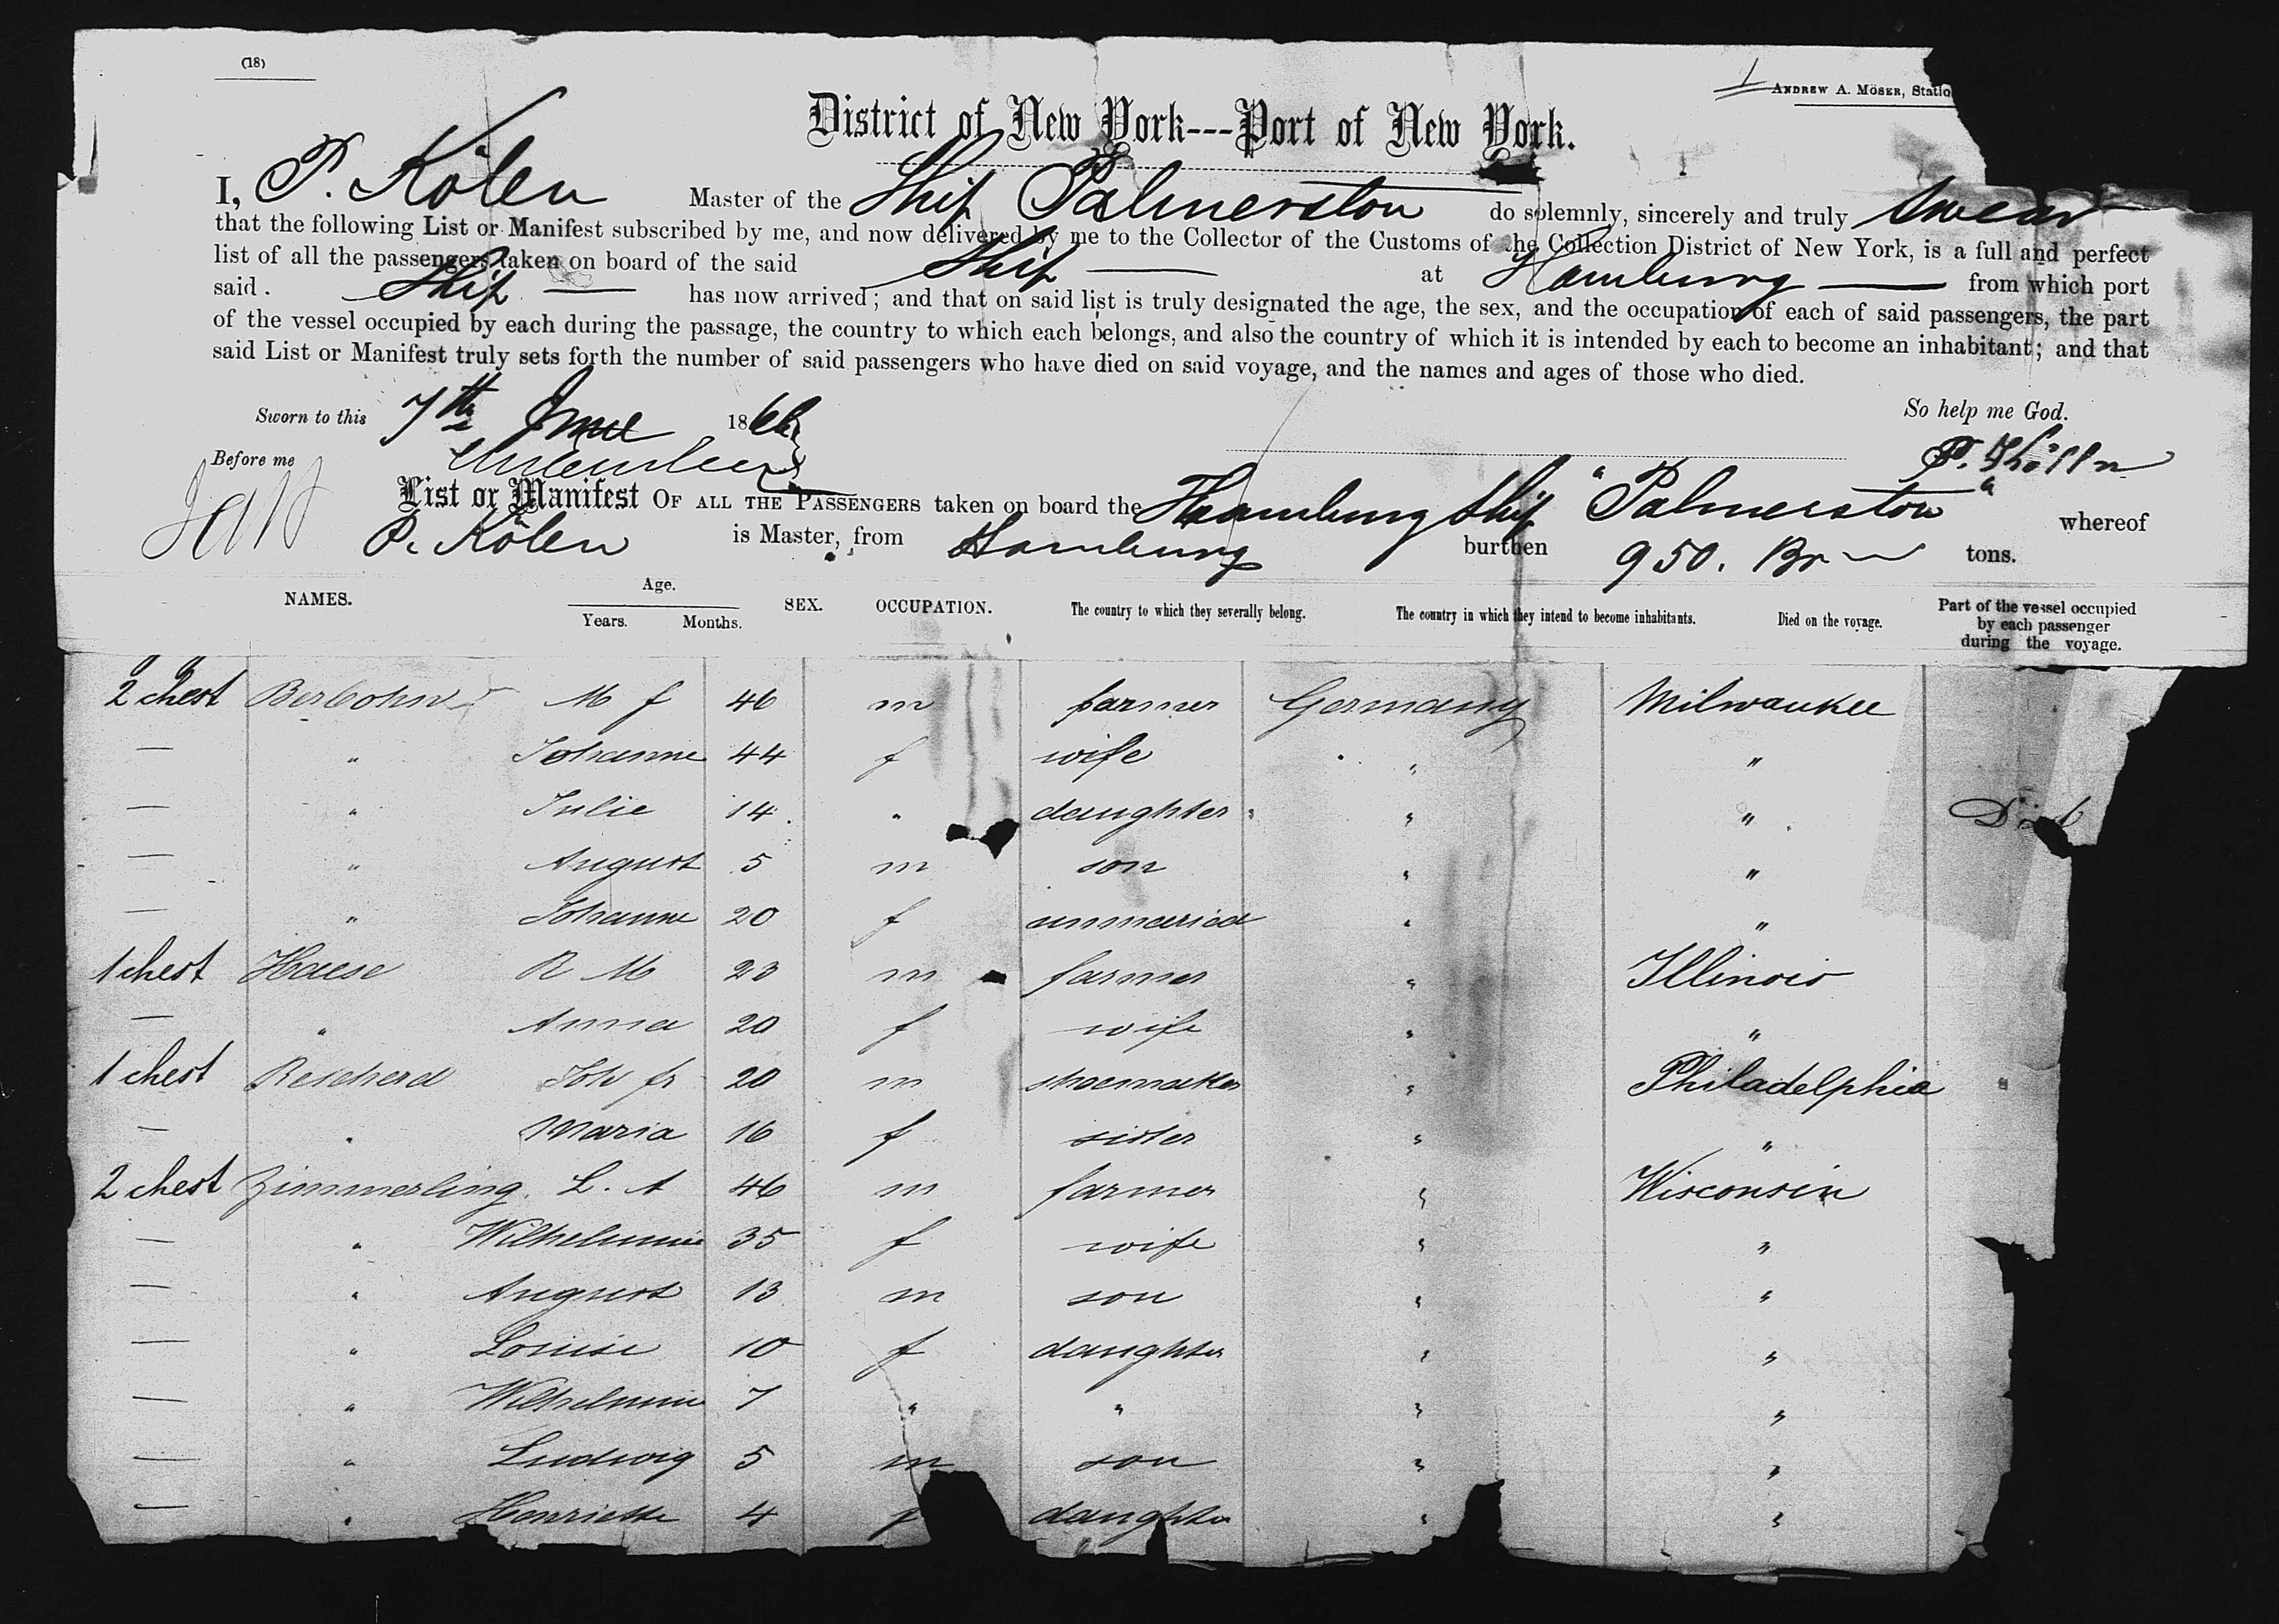 (18)
ANDREW A. MÖSER, Statio
District of New York---Port of New York.
I, P. Kölln Master of the Ship Palmerston do solemnly, sincerely and truly swear
that the following List or Manifest subscribed by me, and now delivered by me to the Collector of the Customs of the Collection District of New York, is a full and perfect
list of all the passengers taken on board of the said Ship — at Hamburg — from which port
said Ship — has now arrived; and that on said list is truly designated the age, the sex, and the occupation of each of said passengers, the part
of the vessel occupied by each during the passage, the country to which each belongs, and also the country of which it is intended by each to become an inhabitant; and that
said List or Manifest truly sets forth the number of said passengers who have died on said voyage, and the names and ages of those who died.
Sworn to this 7th June 1866 So help me God.
Before me P. Kölln
List or Manifest OF ALL THE PASSENGERS taken on board the Hamburg Ship "Palmerston" whereof
P. Kölln is Master, from Hamburg burthen 950. Br tons.
NAMES. Age. Years. Months. SEX. OCCUPATION. The country to which they severally belong. The country in which they intend to become inhabitants. Died on the voyage. Part of the vessel occupied by each passenger during the voyage.
2 chest Berbohm M f 46 m farmer Germany Milwaukee
— " Johanne 44 f wife " "
— " Julie 14 " daughter " "
— " August 5 m son " "
— " Johanne 20 f unmaried " "
1 chest Haese R M 23 m farmer " Illinois
— " Anna 20 f wife " "
1 chest Rescherd Joh fr 20 m shoemaker " Philadelphia
— " Maria 16 f sister " "
2 chest Zimmerling L. A 46 m farmer " Wisconsin
— " Wilhelmine 35 f wife " "
— " August 13 m son " "
— " Louise 10 f daughter " "
— " Wilhelmine 7 " " " "
— " Ludwig 5 m son " "
— " Henriette 4 f daughter " "